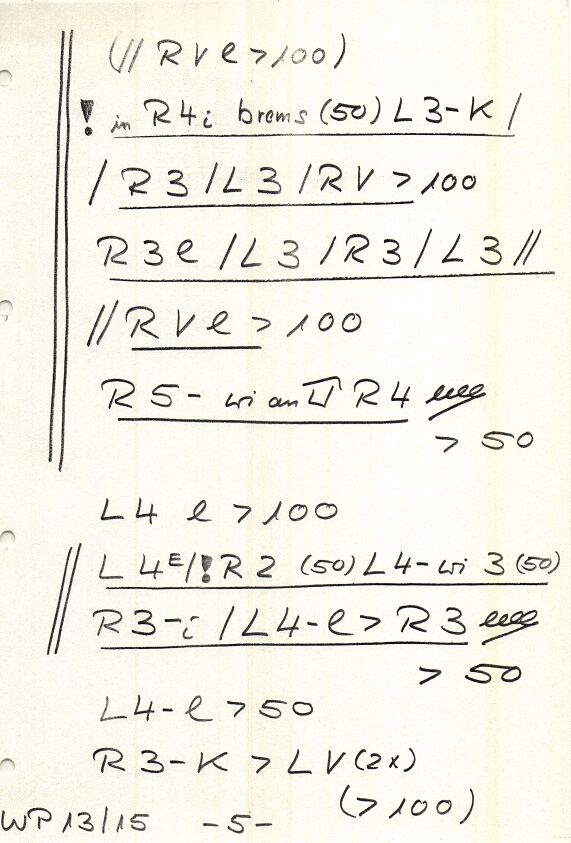 (// R V l > 100)
! in R4i brems (50) L3-K /
/ R3 / L3 / RV > 100
R3l / L3 / R3 / L3 //
// R V l > 100
R5- wi an R4
> 50
L4 l > 100
L4E/! R2 (50) L4-wi 3 (50)
R3-i / L4-l > R3
> 50
L4-l > 50
R3-K > LV (2x)
(> 100)
WP 13/15 -5-